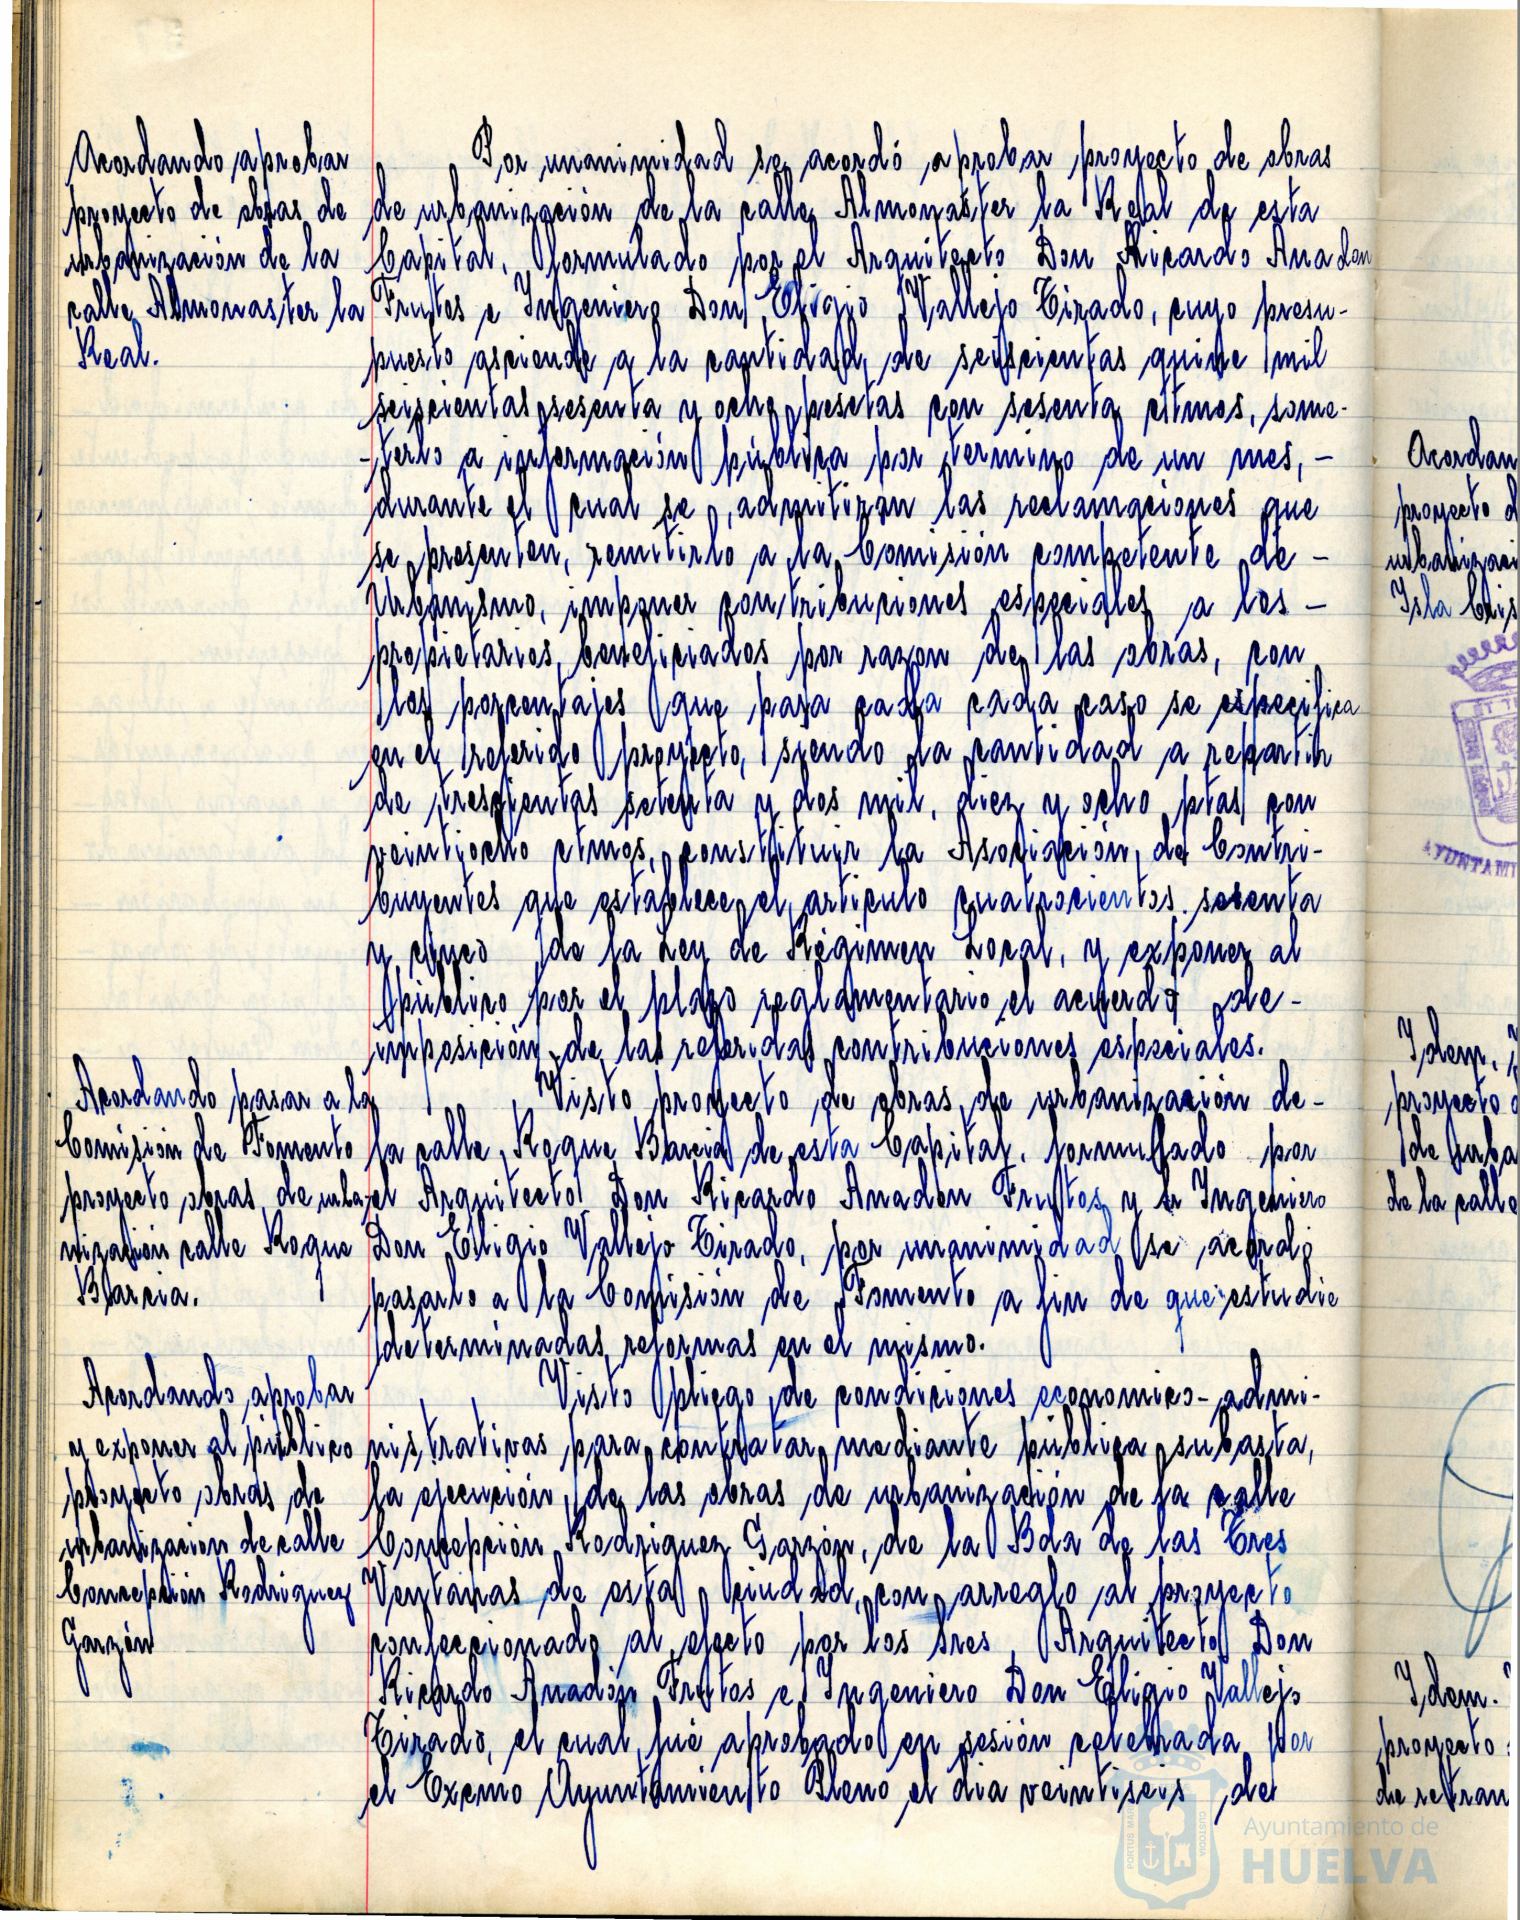 Acordando aprobar
proyecto de obras de
urbanización de la
calle Almonaster la
Real.
Por unanimidad se acordó aprobar proyecto de obras
de urbanización de la calle Almonaster la Real de esta
Capital, formulado por el Arquitecto Don Ricardo Anadon
Frutos e Ingeniero Don Eligio Vallejo Tirado, cuyo presu-
puesto asciende a la cantidad de seiscientas quince mil
seiscientas sesenta y ocho pesetas con sesenta ctmos, some-
-terlo a información pública por termino de un mes, -
durante el cual se admitiran las reclamaciones que
se presenten, remitirlo a la Comisión competente de -
Urbanismo, imponer contribuciones especiales a los -
propietarios beneficiados por razon de las obras, con
los porcentajes que para cada cada caso se especifica
en el referido proyecto, siendo la cantidad a repartir
de trescientas setenta y dos mil, diez y ocho ptas con
veintiocho ctmos, constituir la Asociación de Contri-
buyentes que establece el articulo cuatrocientos sesenta
y cinco de la Ley de Régimen Local, y exponer al
público por el plazo reglamentario el acuerdo de -
imposición de las referidas contribuciones especiales.
Acordando pasar a la
Comisión de Fomento
proyecto obras de urba-
nización calle Roque
Barcia.
Visto proyecto de obras de urbanización de -
la calle Roque Barcia de esta Capital, formulado por
el Arquitecto Don Ricardo Anadón Frutos y Ingeniero
Don Eligio Vallejo Tirado, por unanimidad se acordó
pasarlo a la Comisión de Fomento a fin de que estudie
determinadas reformas en el mismo.
Acordando aprobar
y exponer al público
proyecto obras de
urbanizacion de calle
Concepción Rodriguez
Garzón
Visto pliego de condiciones economico-admi-
nistrativas para contratar mediante pública subasta,
la ejecución de las obras de urbanización de la calle
Concepción Rodriguez Garzón, de la Bda de las Tres
Ventanas de esta Ciudad, con arreglo al proyecto
confeccionado al efecto por los Sres Arquitecto Don
Ricardo Anadón Frutos e Ingeniero Don Eligio Vallejo
Tirado, el cual fué aprobado en sesión celebrada por
el Excmo Ayuntamiento Pleno el dia veintiseis de
Acordan
proyecto d
urbanizaci
Isla Cris
AYUNTAMI
Idem.
proyecto
de urba
de la calle
Idem.
proyecto
de retran
PORTUS MARIS
CUSTODIA
Ayuntamiento de
HUELVA